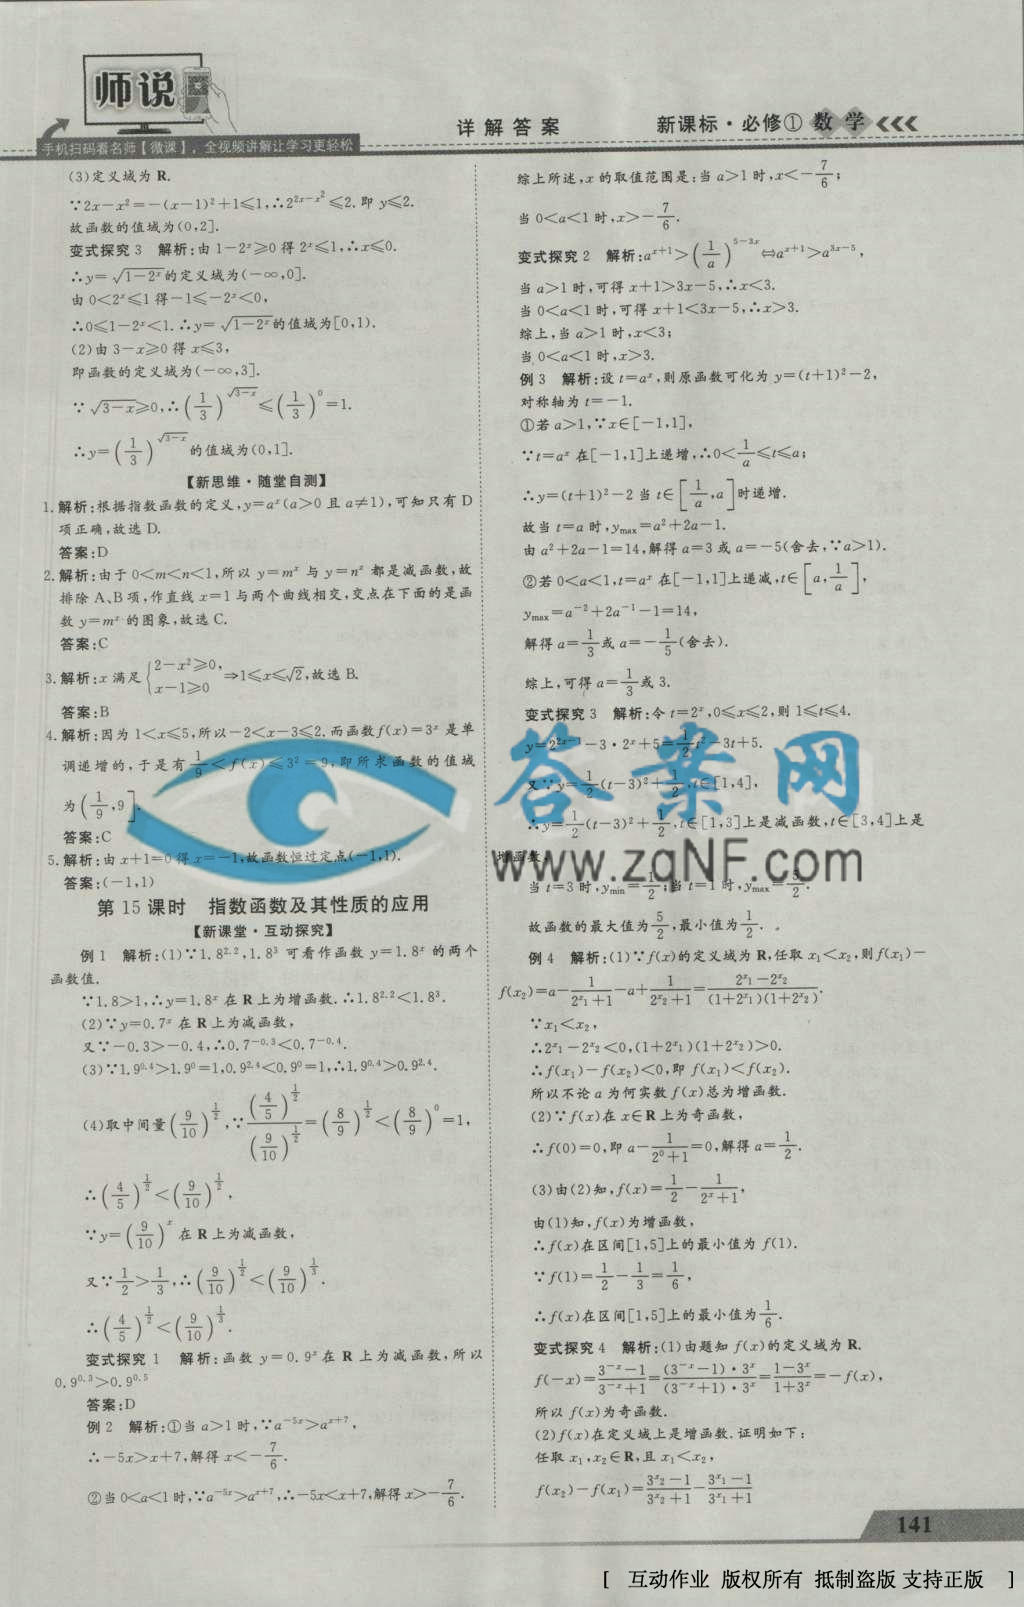 师说
手机扫码看名师【微课】，全视频讲解让学习更轻松
详解答案
新课标·必修① 数学
(3)定义域为 R.
∵2x－x²＝－(x－1)²＋1≤1,∴2^(2x－x²)≤2.即 y≤2.
故函数的值域为(0,2].
变式探究 3 解析:由 1－2^x≥0 得 2^x≤1,∴x≤0.
∴y＝√(1－2^x)的定义域为(－∞,0].
由 0＜2^x≤1 得－1≤－2^x＜0,
∴0≤1－2^x＜1.∴y＝√(1－2^x)的值域为[0,1).
(2)由 3－x≥0 得 x≤3,
即函数的定义域为(－∞,3].
∵√(3－x)≥0,∴(1/3)^√(3－x)≤(1/3)^0＝1.
∴y＝(1/3)^√(3－x)的值域为(0,1].
【新思维·随堂自测】
1.解析:根据指数函数的定义,y＝a^x(a＞0 且 a≠1),可知只有 D
项正确,故选 D.
答案:D
2.解析:由于 0＜m＜n＜1,所以 y＝m^x 与 y＝n^x 都是减函数,故
排除 A、B 项,作直线 x＝1 与两个曲线相交,交点在下面的是函
数 y＝m^x 的图象,故选 C.
答案:C
3.解析:x 满足{2－x²≥0, x－1≥0 ⇒1≤x≤√2,故选 B.
答案:B
4.解析:因为 1＜x≤5,所以－2＜x－3≤2.而函数 f(x)＝3^x 是单
调递增的,于是有 1/9＜f(x)≤3²＝9,即所求函数的值域
为(1/9,9].
答案:C
5.解析:由 x＋1＝0 得 x＝－1,故函数恒过定点(－1,1).
答案:(－1,1)
第 15 课时 指数函数及其性质的应用
【新课堂·互动探究】
例 1 解析:(1)∵1.8^2.2,1.8^3 可看作函数 y＝1.8^x 的两个
函数值.
∵1.8＞1,∴y＝1.8^x 在 R 上为增函数.∴1.8^2.2＜1.8^3.
(2)∵y＝0.7^x 在 R 上为减函数,
又∵－0.3＞－0.4,∴0.7^－0.3＜0.7^－0.4.
(3)∵1.9^0.4＞1.9^0＝1,0.9^2.4＜0.9^0＝1,∴1.9^0.4＞0.9^2.4.
(4)取中间量(9/10)^(1/2),∵(4/5)^(1/2)/(9/10)^(1/2)＝(8/9)^(1/2)＜(8/9)^0＝1,
∴(4/5)^(1/2)＜(9/10)^(1/2),
∵y＝(9/10)^x 在 R 上为减函数,
又∵1/2＞1/3,∴(9/10)^(1/2)＜(9/10)^(1/3).
∴(4/5)^(1/2)＜(9/10)^(1/3).
变式探究 1 解析:函数 y＝0.9^x 在 R 上为减函数,所以
0.9^0.3＞0.9^0.5
答案:D
例 2 解析:①当 a＞1 时,∵a^(－5x)＞a^(x＋7),
∴－5x＞x＋7,解得 x＜－7/6.
②当 0＜a＜1 时,∵a^(－5x)＞a^(x＋7),∴－5x＜x＋7,解得 x＞－7/6.
综上所述,x 的取值范围是:当 a＞1 时,x＜－7/6;
当 0＜a＜1 时,x＞－7/6.
变式探究 2 解析:a^(x＋1)＞(1/a)^(5－3x)⇔a^(x＋1)＞a^(3x－5),
当 a＞1 时,可得 x＋1＞3x－5,∴x＜3.
当 0＜a＜1 时,可得 x＋1＜3x－5,∴x＞3.
综上,当 a＞1 时,x＜3;
当 0＜a＜1 时,x＞3.
例 3 解析:设 t＝a^x,则原函数可化为 y＝(t＋1)²－2,
对称轴为 t＝－1.
①若 a＞1,∵x∈[－1,1],
∵t＝a^x 在[－1,1]上递增,∴0＜1/a≤t≤a;
∴y＝(t＋1)²－2 当 t∈[1/a,a]时递增.
故当 t＝a 时,y_max＝a²＋2a－1.
由 a²＋2a－1＝14,解得 a＝3 或 a＝－5(舍去,∵a＞1).
②若 0＜a＜1,t＝a^x 在[－1,1]上递减,t∈[a,1/a],
y_max＝a^－2＋2a^－1－1＝14,
解得 a＝1/3 或 a＝－1/5(舍去).
综上,可得 a＝1/3 或 3.
变式探究 3 解析:令 t＝2^x,0≤x≤2,则 1≤t≤4.
y＝2^(2x－1)－3·2^x＋5＝1/2t²－3t＋5.
又∵y＝1/2(t－3)²＋1/2,t∈[1,4],
∴y＝1/2(t－3)²＋1/2,t∈[1,3]上是减函数,t∈[3,4]上是
增函数,
当 t＝3 时,y_min＝1/2;当 t＝1 时,y_max＝5/2.
故函数的最大值为 5/2,最小值为 1/2.
例 4 解析:(1)∵f(x)的定义域为 R,任取 x₁＜x₂,则 f(x₁)－
f(x₂)＝a－1/(2^x₁＋1)－a＋1/(2^x₂＋1)＝(2^x₁－2^x₂)/((1＋2^x₁)(1＋2^x₂)).
∵x₁＜x₂,
∴2^x₁－2^x₂＜0,(1＋2^x₁)(1＋2^x₂)＞0.
∴f(x₁)－f(x₂)＜0,即 f(x₁)＜f(x₂).
所以不论 a 为何实数 f(x)总为增函数.
(2)∵f(x)在 x∈R 上为奇函数,
∴f(0)＝0,即 a－1/(2^0＋1)＝0,解得 a＝1/2.
(3)由(2)知,f(x)＝1/2－1/(2^x＋1),
由(1)知,f(x)为增函数,
∴f(x)在区间[1,5]上的最小值为 f(1).
∵f(1)＝1/2－1/3＝1/6,
∴f(x)在区间[1,5]上的最小值为 1/6.
变式探究 4 解析:(1)由题知 f(x)的定义域为 R.
f(－x)＝(3^－x－1)/(3^－x＋1)＝((3^－x－1)·3^x)/((3^－x＋1)·3^x)＝(1－3^x)/(1＋3^x)＝－f(x),
所以 f(x)为奇函数.
(2)f(x)在定义域上是增函数.证明如下:
任取 x₁,x₂∈R,且 x₁＜x₂,
f(x₂)－f(x₁)＝(3^x₂－1)/(3^x₂＋1)－(3^x₁－1)/(3^x₁＋1)
答案网
www.zqNF.com
141
[ 互动作业 版权所有 抵制盗版 支持正版 ]